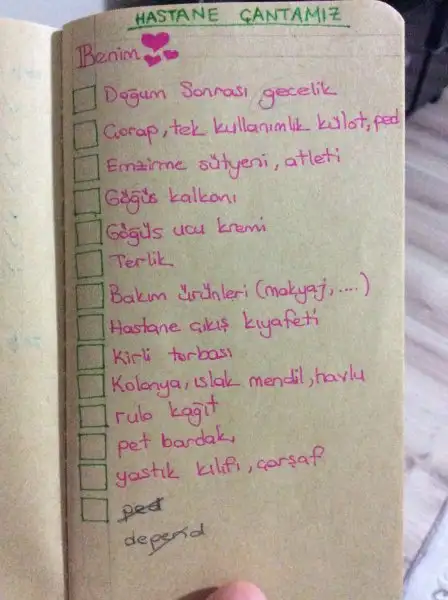 HASTANE ÇANTAMIZ
Benim
Doğum Sonrası gecelik
Çorap, tek kullanımlık külot, ped
Emzirme sütyeni, atleti
Göğüs kalkanı
Göğüs ucu kremi
Terlik
Bakım ürünleri (makyaj, ....)
Hastane çıkış kıyafeti
Kirli torbası
Kolonya, ıslak mendil, havlu
rulo kağıt
pet bardak,
yastık kılıfı, çarşaf
ped
depend